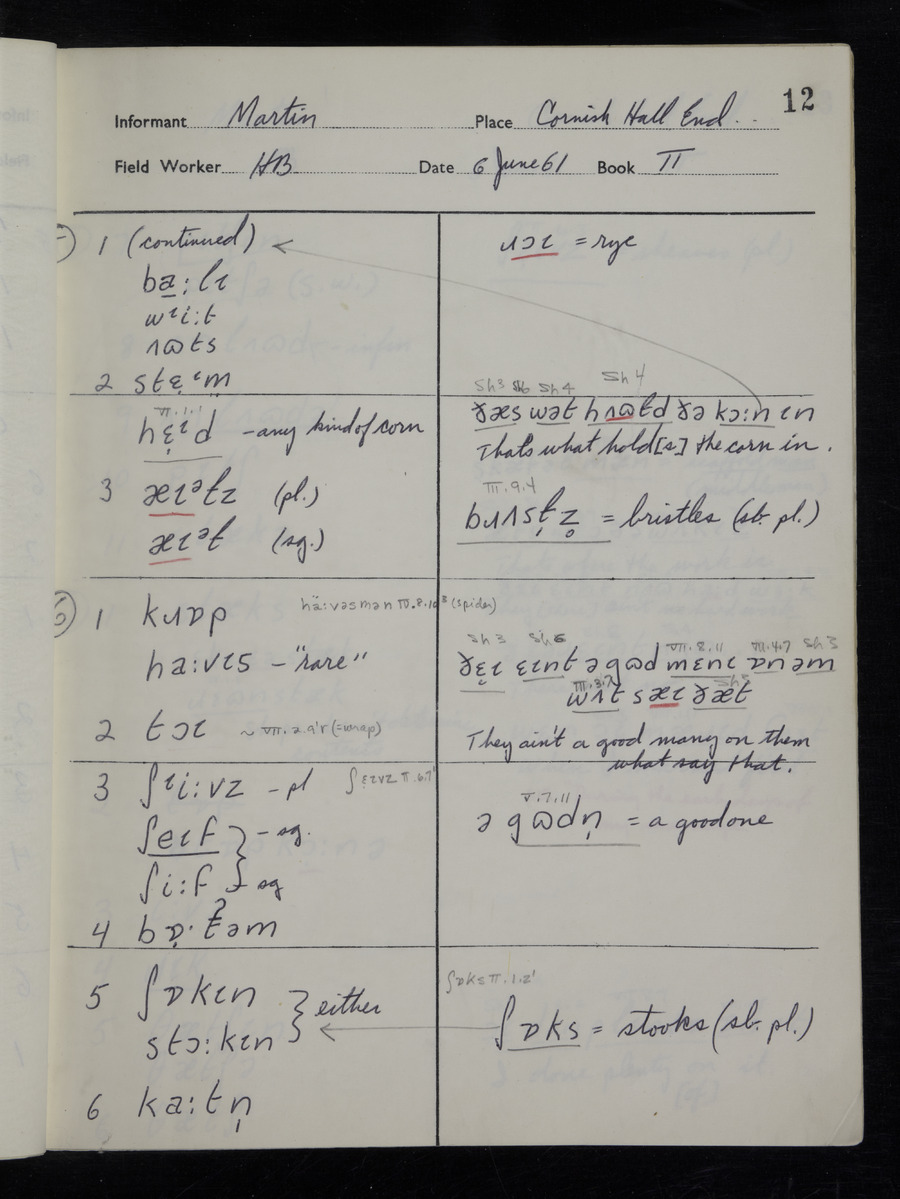 12
Informant Martin Place Cornish Hall End
Field Worker HB Date 6 June 61 Book II
5) 1 (continued)
ba̠:lɪ
wᶦi:t
ʌɷts
2 stɛ̣ᶦm
VI.1.1
hɛ̣ɪd – any kind of corn
3 æɪᵊtz (pl.)
æɪᵊt (sg.)
ɹɔɪ = rye
Sh3 Sh6 Sh4 Sh4
ðæs wət hʌɷtd ðə kɔ:n ɪn
That's what hold[s] the corn in.
III.9.4
bɹʌsṭz̥ = bristles (sb. pl.)
6) 1 kɹɒp
ha:vɪs – "rare"
hä:vəsmən IV.8.10³ (spider)
2 tɔɪ ~ VII.2.9'r (=wrap)
3 ʃᶦi:vz – pl ʃɛɪvz II.6.7'
ʃeɪf } – sg.
ʃi:f } sg
4 bɒ̣·t̰əm
Sh3 Sh6 VII.8.11 VII.4.7 Sh3
ðɛ̣ɪ ɛɪnt ə gɷd mɛnɪ ɒn əm
III.3.7 Sh5
wʌt sæɪ ðæt
They ain't a good many on them
what say that.
V.7.11
ə gɷdṇ = a good one
5 ʃɒkɪn } either
stɔ:kɪn
6 ka:tṇ
ʃɒks II.1.2'
ʃɒks = stooks (sb. pl.)